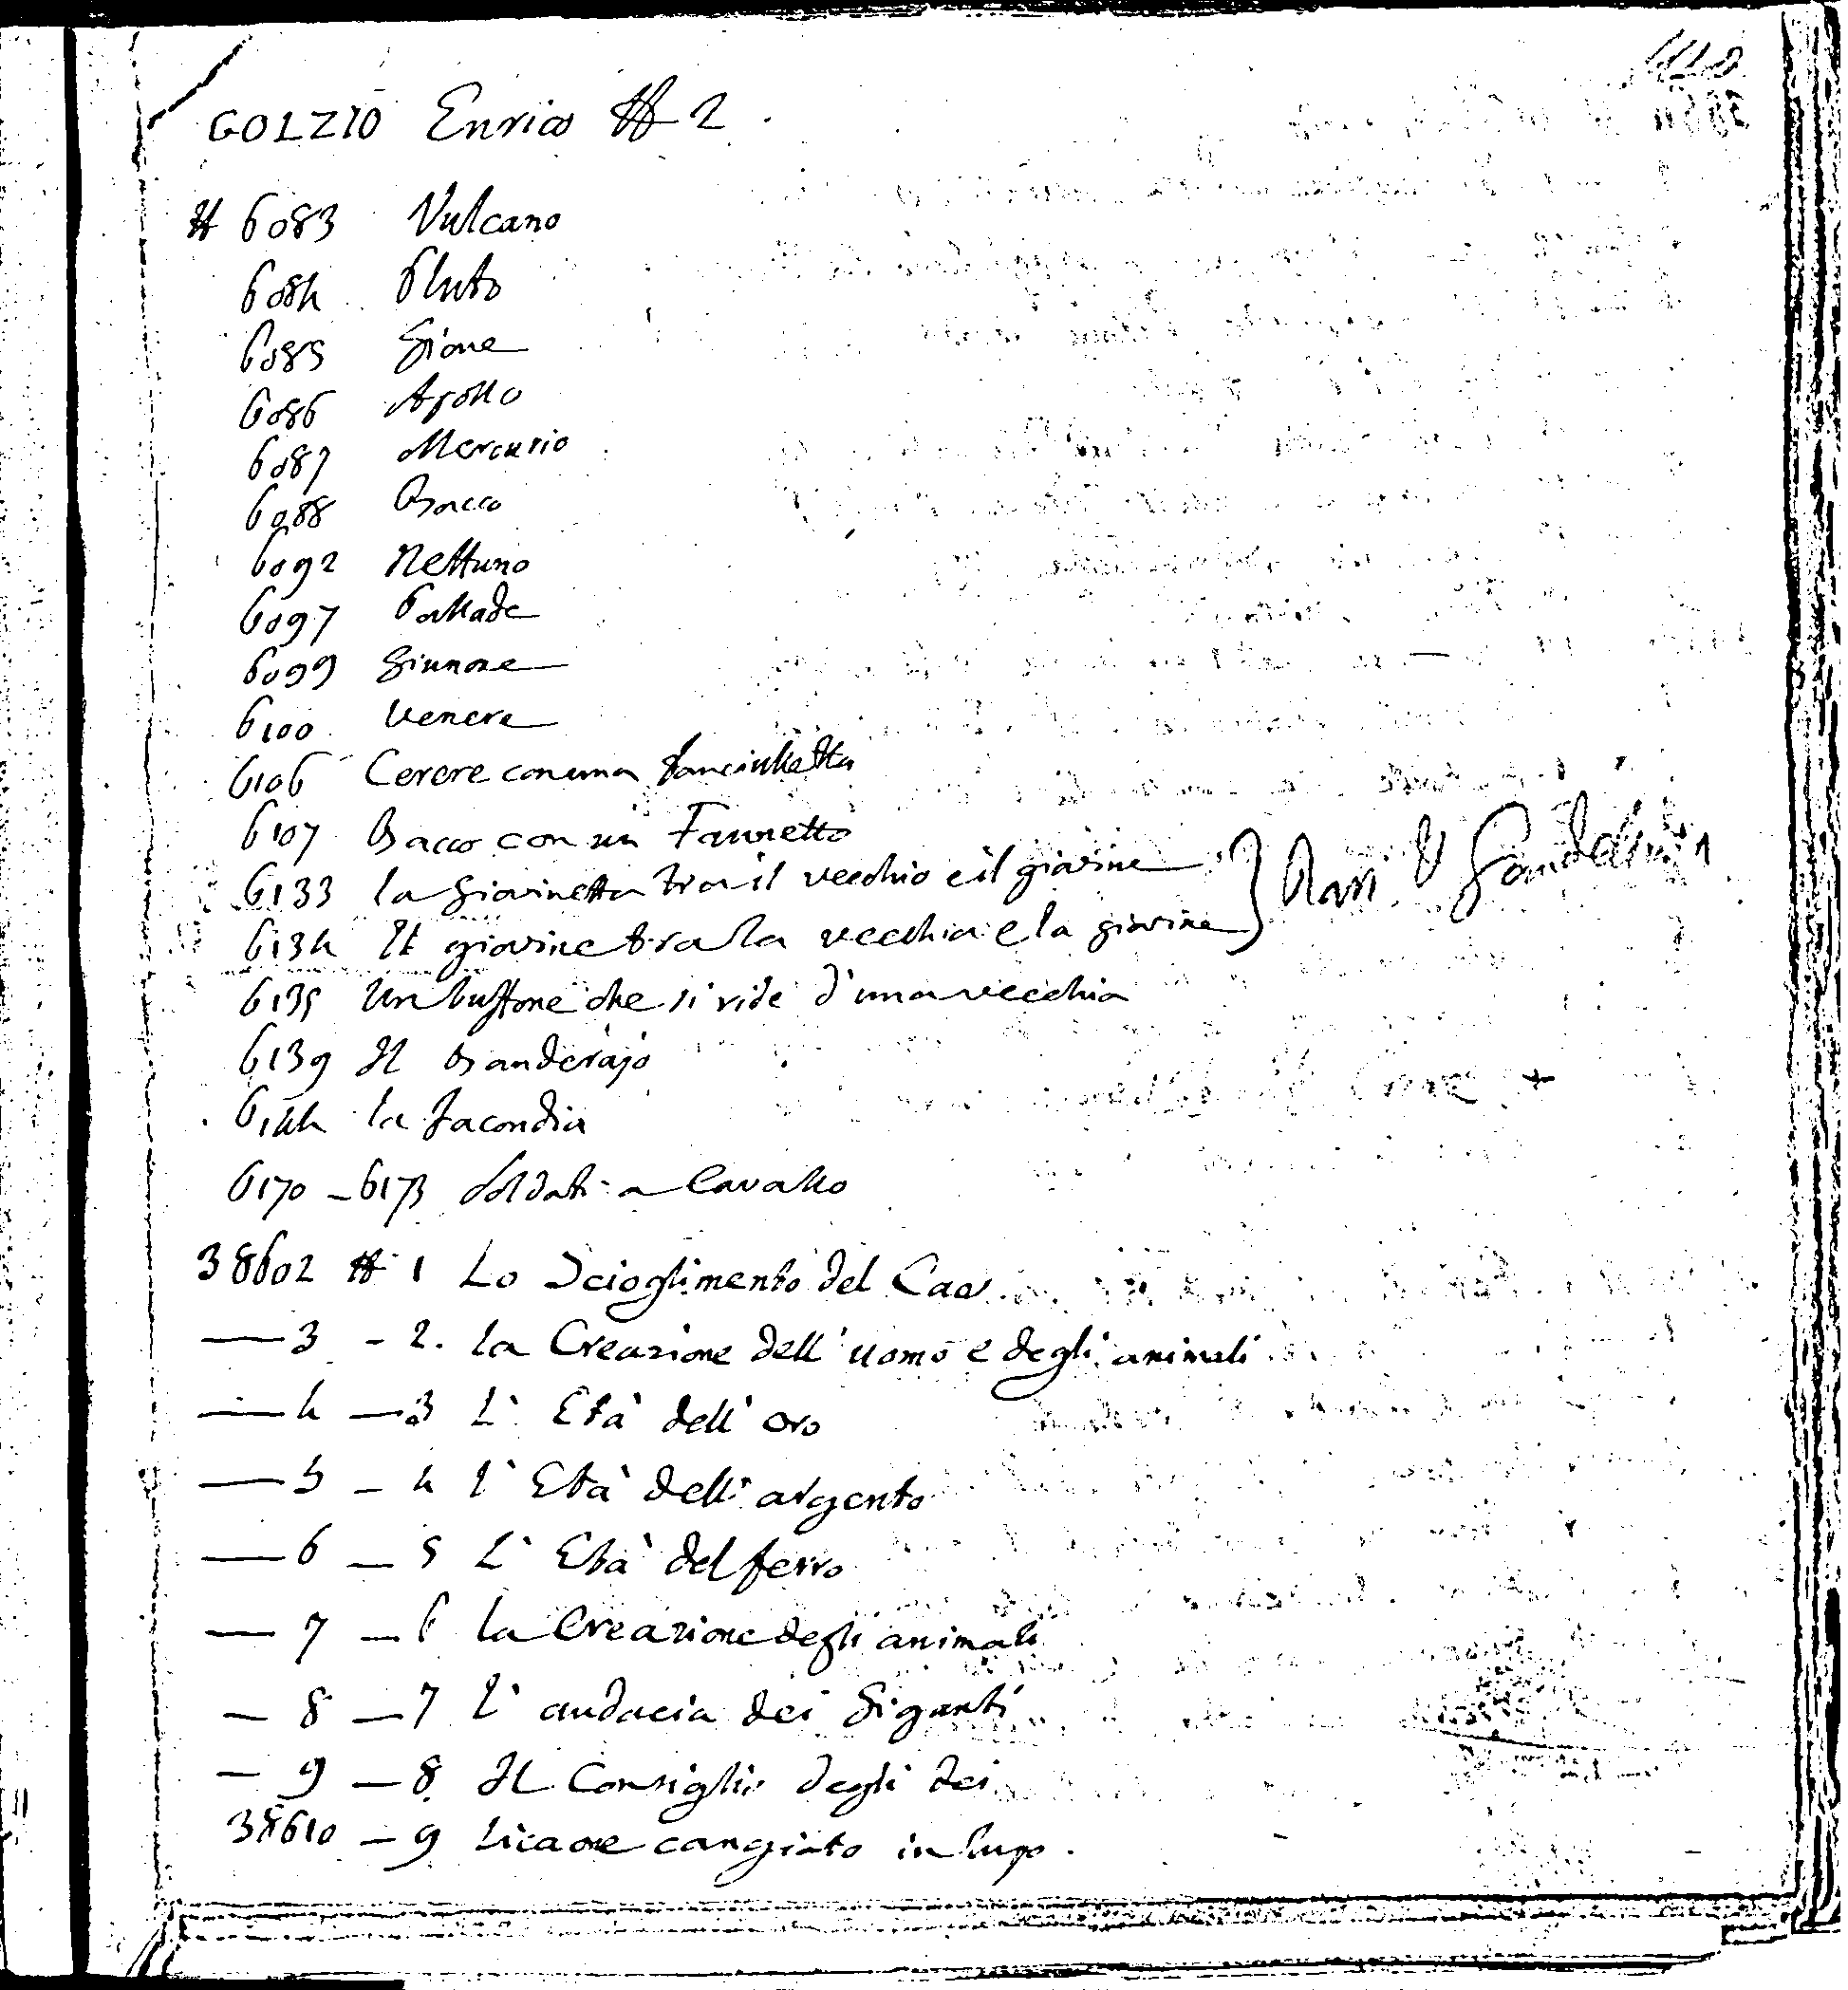 GOLZIO Enrico # 2
# 6083 Vulcano
6084 Pluto
6085 Giove
6086 Apollo
6087 Mercurio
6088 Bacco
6092 Nettuno
6097 Pallade
6099 Giunone
6100 Venere
6106 Cerere con una fanciulletta
6107 Bacco con un Faunetto
6133 la giovinetta tra il vecchio e il giovine
6134 Il giovine tra la vecchia e la giovine } Rari
6135 Un buffone che si ride d'una vecchia
6139 Il Banderajo
6144 la facondia
6170 - 6173 Soldati a Cavallo
38602 # 1 Lo Scioglimento del Caos
— 3 - 2. la Creazione dell' uomo e degli animali
— 4 — 3 L' Età dell' oro
— 5 - 4 l' Età dell' argento
— 6 — 5 L' Età del ferro
— 7 — 6 la Creazione degli animali
— 8 — 7 l' audacia dei Giganti
— 9 — 8 Il Consiglio degli dei
38610 — 9 Licaone cangiato in lupo.